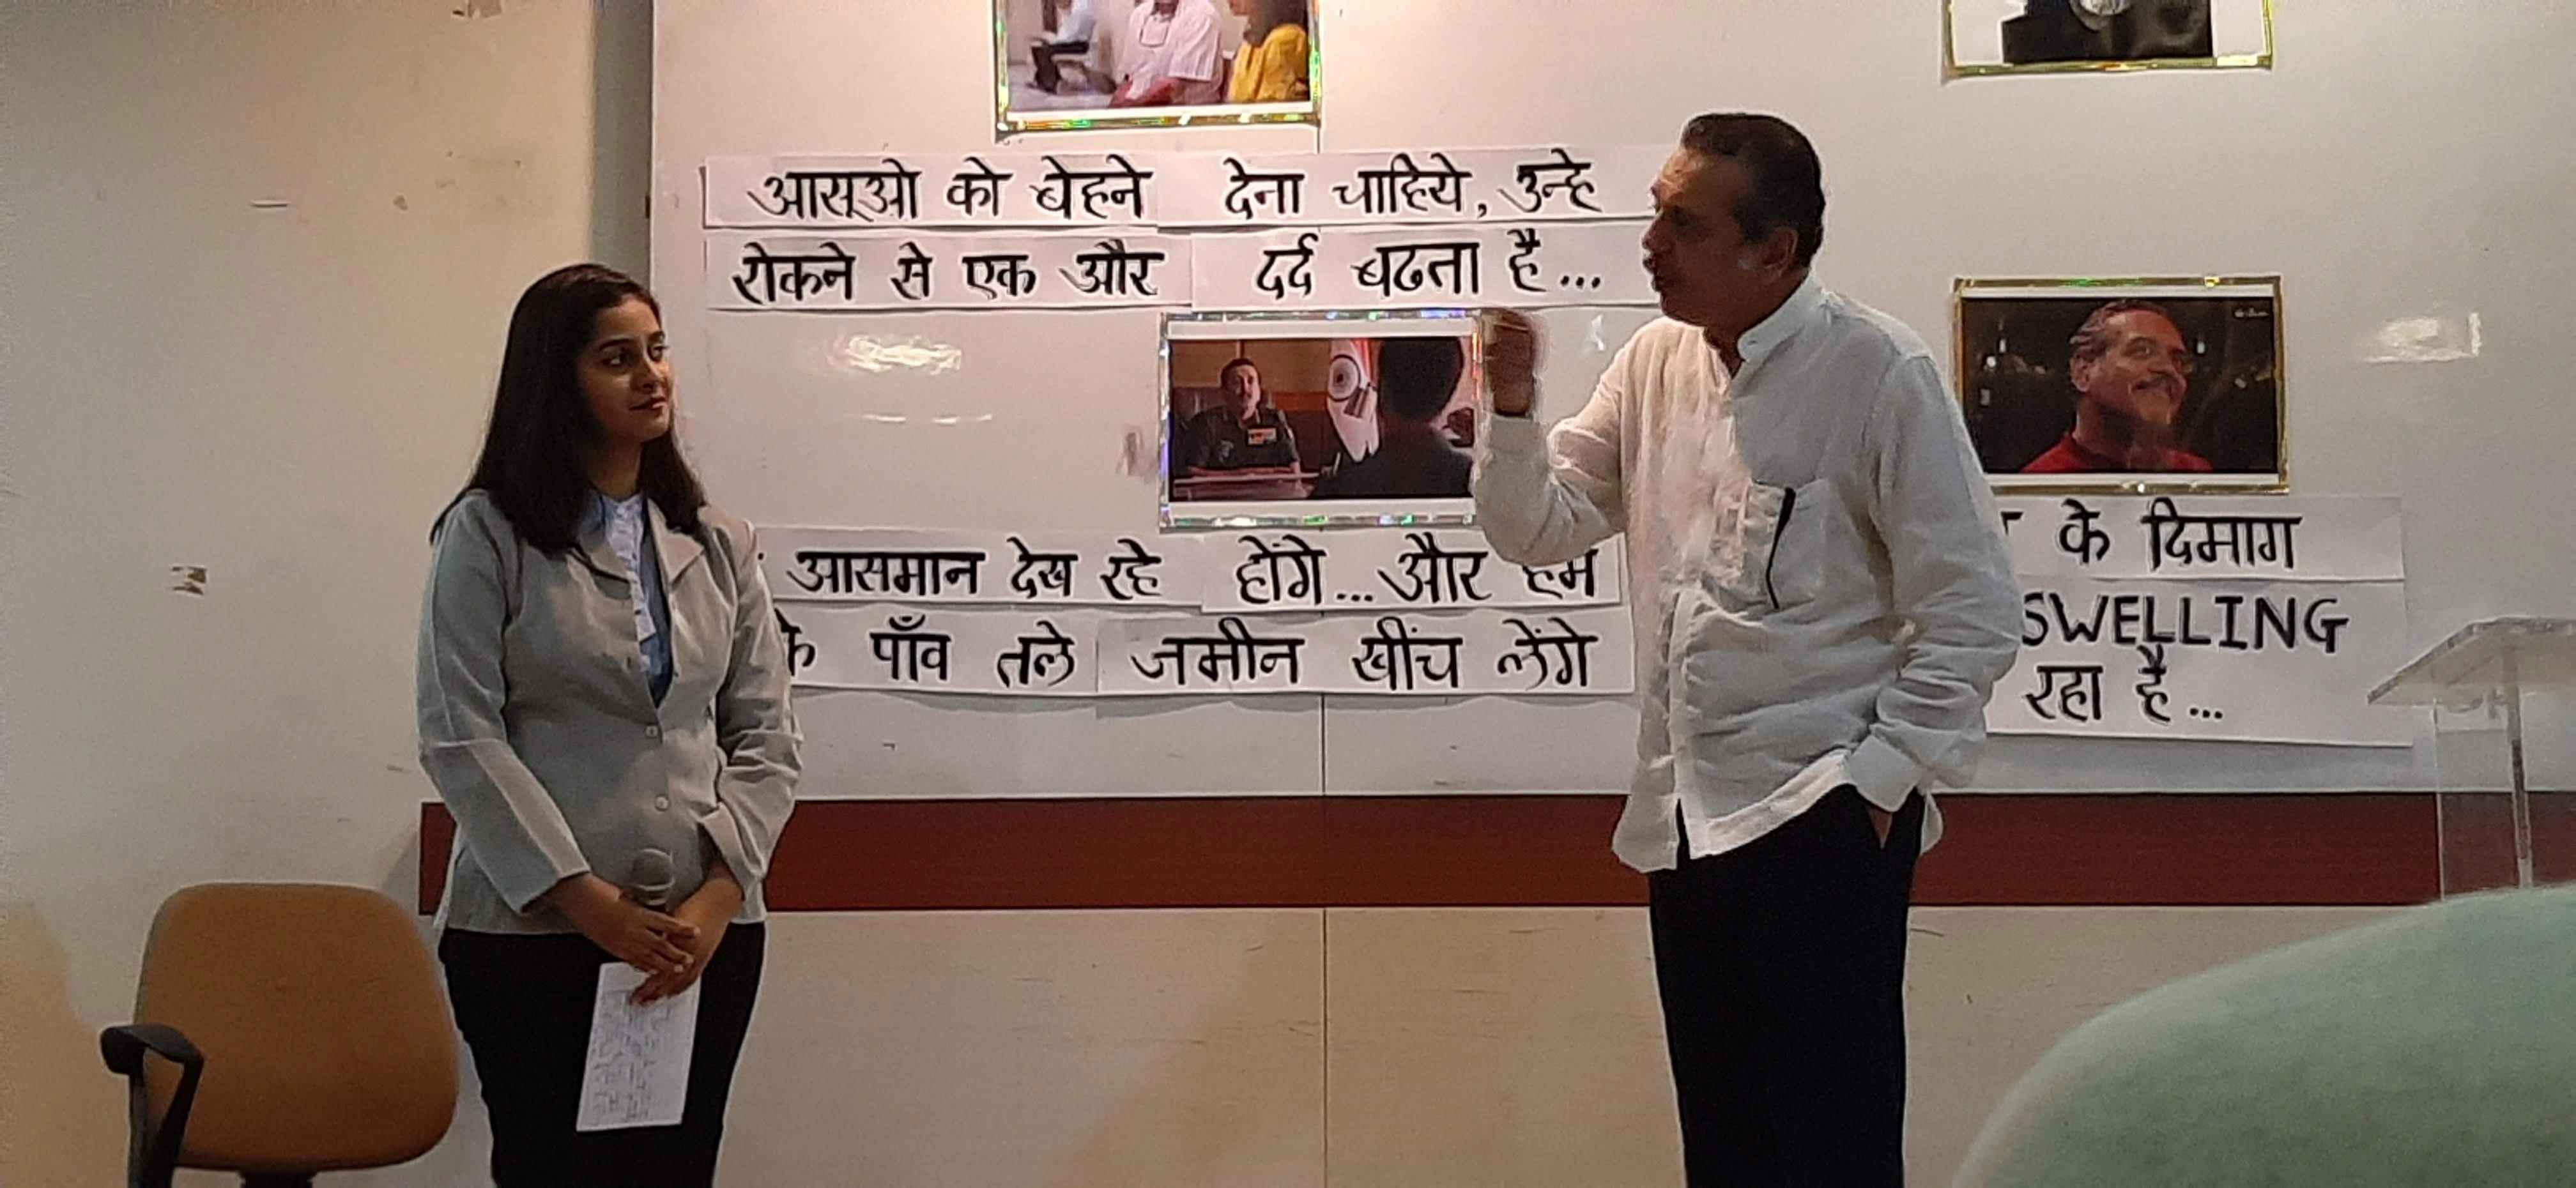 आसूओ को बेहने देना चाहिये, उन्हे
रोकने से एक और दर्द बढता है...
आसमान देख रहे होंगे...और हम
के पाँव तले जमीन खींच लेंगे
के दिमाग
SWELLING
रहा है...